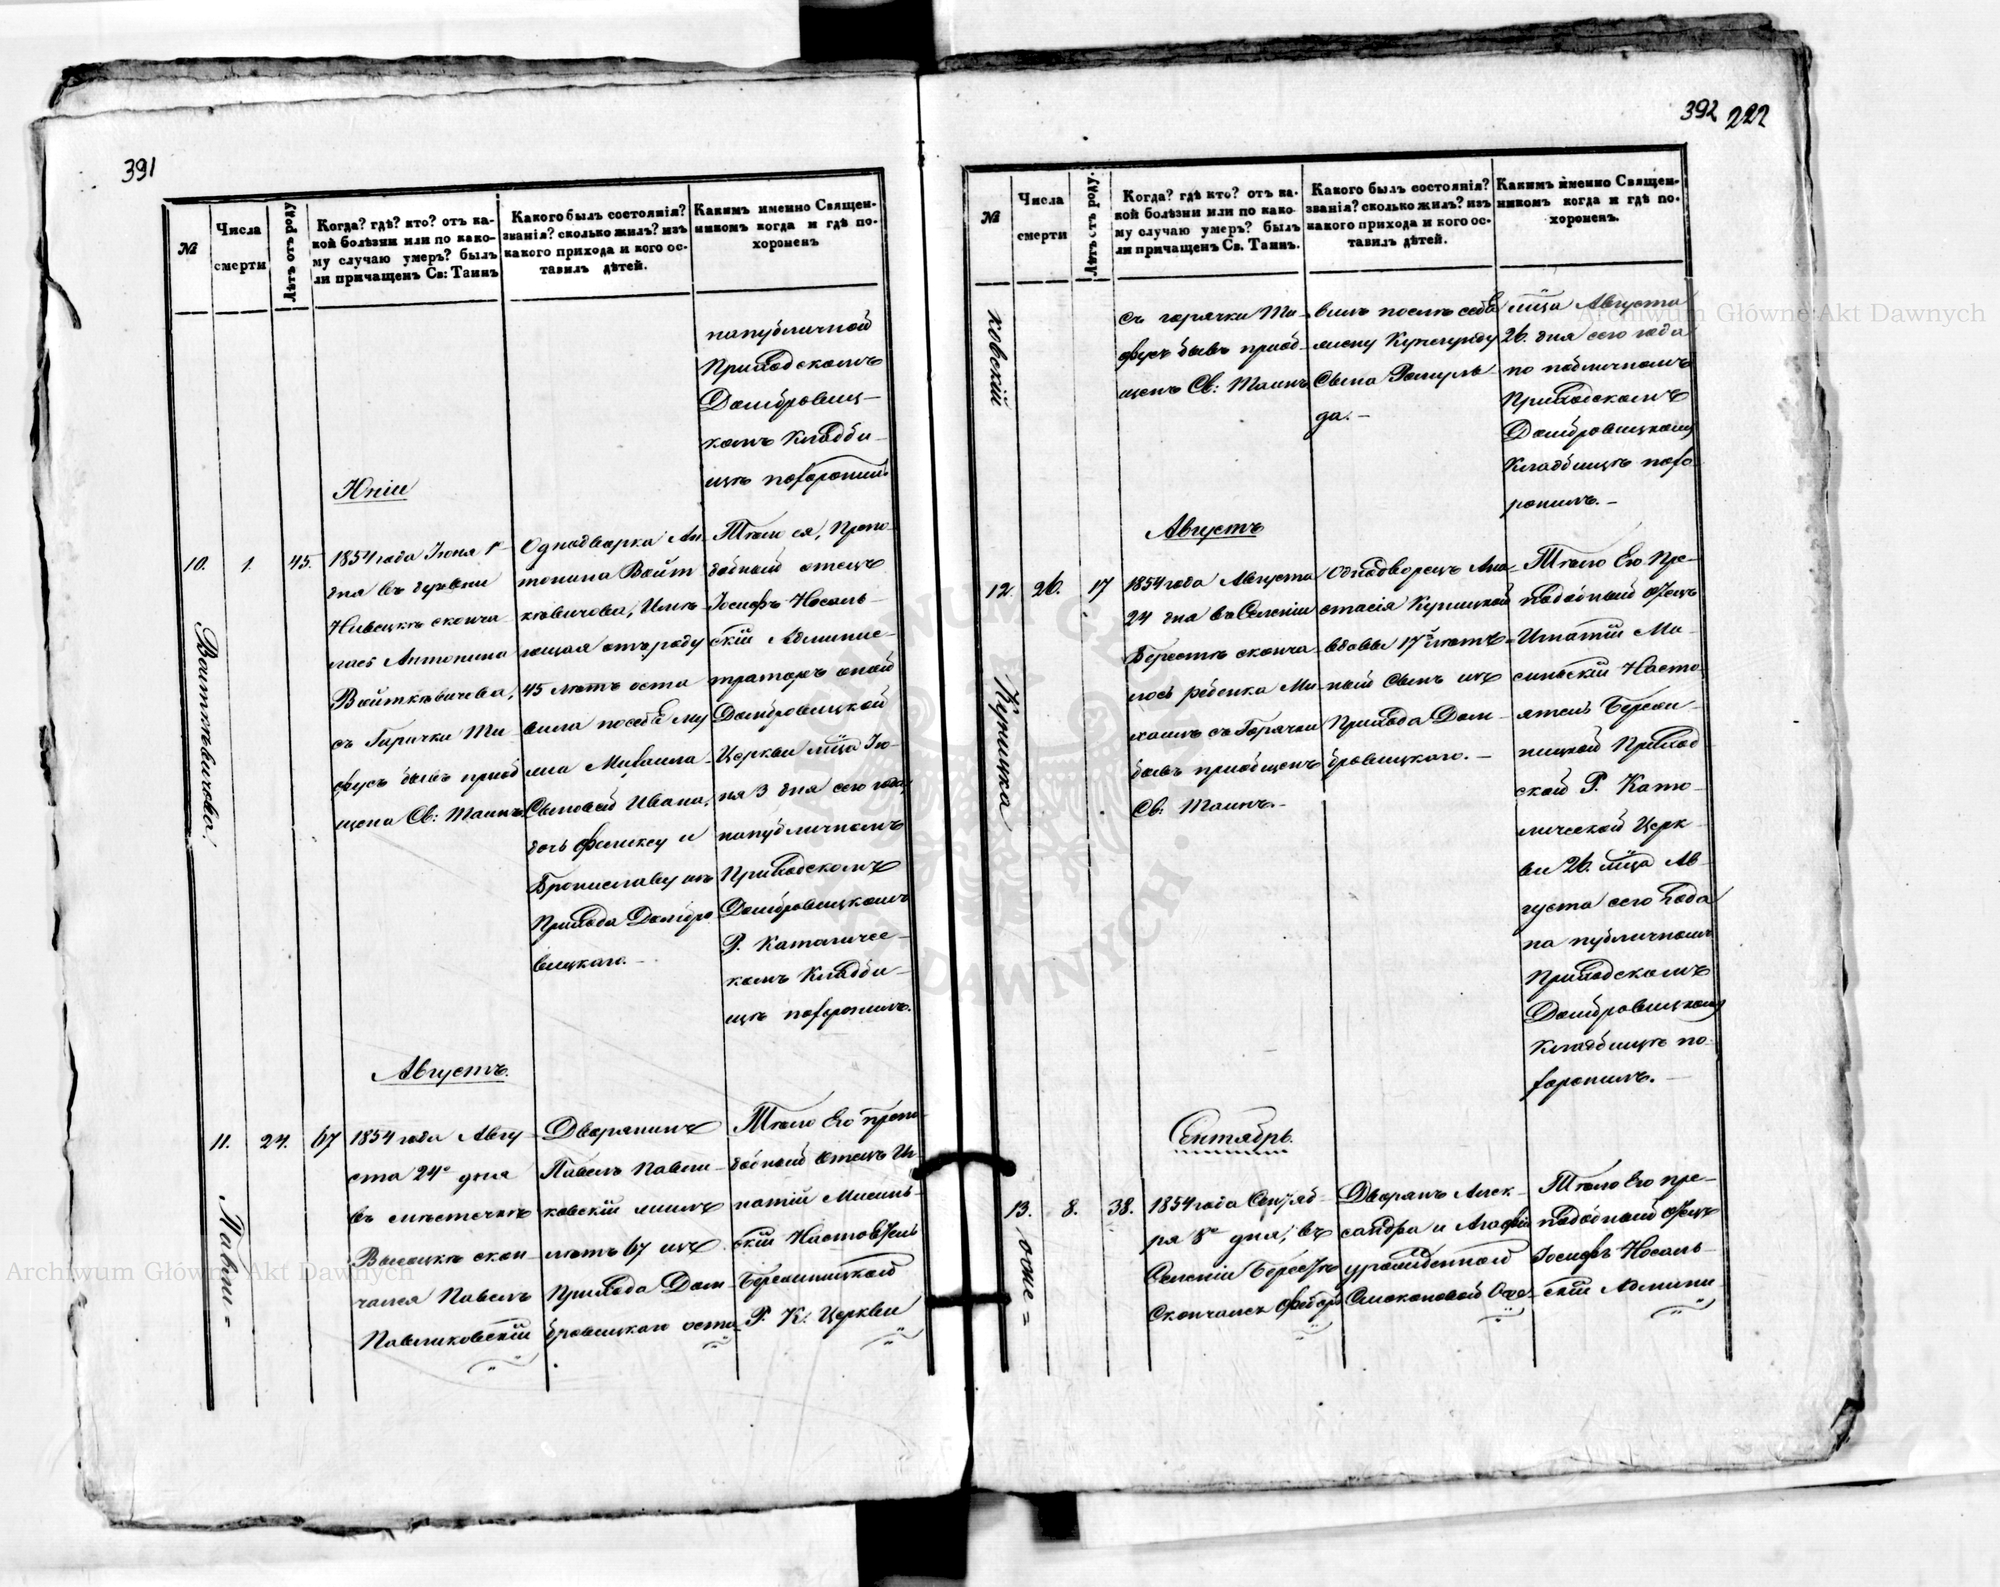 391
№
Числа
смерти
Лѣтъ отъ роду
Когда? гдѣ? кто? отъ ка-
кой болѣзни или по како-
му случаю умеръ? былъ
ли причащенъ Св: Таинъ
Какого былъ состоянія?
званія? сколько жилъ? изъ
какого прихода и кого ос-
тавилъ дѣтей.
Какимъ именно Священ-
никомъ когда и гдѣ по-
хороненъ
на публичной
Приходскомъ
Домбровиц-
комъ Кладби-
щѣ похоронилъ
Юніи
10.
1.
45.
Войткѣвичова.
1854 года Іюня 1го
дня въ деревни
Нивецкѣ сконча
лась Антонина
Войткѣвичева,
съ Гирячки Ти
фусъ бывъ приоб
щена Св: Таинъ
Однодворка Ан-
тонина Войт
кѣвичова, Имѣ
ющая отъ роду
45 лѣтъ оста
вила по себѣ му
жа Михаила
Сыновей Ивана,
дочь Феликсу и
Брониславу изъ
Прихода Домбро
вицкаго. -
Тѣло ея, Препо
добный отецъ
Іосифъ Носаль-
скій Админис-
траторъ оной
Домбровицкой
Церкви мѣца Ію-
ня 3 дня сего года
на публичномъ
Приходскомъ
Домбровицкомъ
Р. Католичес-
комъ Кладби-
щѣ похоронилъ.
Августъ.
11.
24.
67
Павли=
1854 года Авгу
ста 24го дня
въ мѣстечкѣ
Высоцкѣ скон
чался Павелъ
Павликовскій
Дворянинъ
Павелъ Павли-
ковскій жилъ
лѣтъ 67 изъ
Прихода Дом-
бровицкаго оста
Тѣло Его препо
добный Отецъ Иг-
натій Мисинь-
скій Настоятель
Бережницкаго
Р. К. Церкви
392 222
№
Числа
смерти
Лѣтъ отъ роду.
Когда? гдѣ кто? отъ ка-
кой болѣзни или по како-
му случаю умеръ? былъ
ли причащенъ Св. Таинъ.
Какого былъ состоянія?
званія? сколько жилъ? изъ
какого прихода и кого ос-
тавилъ дѣтей.
Какимъ именно Священ-
никомъ когда и гдѣ по-
хороненъ.
ковскій
съ горячки Ти-
фусъ бывъ приоб-
щенъ Св: Таинъ
вилъ послѣ себя
жену Кунегунду
Сына Ромуль-
да. -
мѣца Августа
26. дня сего года
по публичномъ
Приходскомъ
Домбровицкомъ
Кладбищѣ похо-
ронилъ. -
Августъ
12.
26.
17
Куницка
1854 года Августа
24 дня въ Селеніи
Берестѣ сконча
лось ребенка Ми-
хаилъ съ Горячки
бывъ приобщенъ
Св: Таинъ. -
Однодворецъ Ана-
стасія Куницкой
вдовы 17 лѣтъ-
ный Сынъ изъ
Прихода Дом-
бровицкаго. -
Тѣло Его Пре-
подобный Отецъ
Игнатій Ми-
синьскій Насто-
ятель Бережн-
ницкой Приход
ской Р. Като-
лической Церк-
ви 26. мѣца Ав-
густа сего Года
на публичномъ
Приходскомъ
Домбровицкомъ
Кладбищѣ по-
хоронилъ. -
Сентябрь.
13.
8.
38.
1854 года Сентяб-
ря 8го дня, въ
Селеніи Берестѣ
Скончался
Дворянъ Алек-
сандра и Агафіи
урожденной
Тѣло Его пре-
подобный Отецъ
Іосифъ Носаль-
скій Админи-
Archiwum Główne Akt Dawnych
Archiwum Główne Akt Dawnych